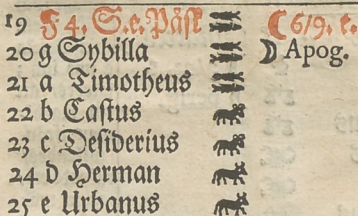 19 F 4. S. e. Påsk ☾ 6/9. e.
20 g Sybilla ☽ Apog.
21 a Timotheus
22 b Castus
23 c Desiderius
24 d Herman
25 e Urbanus